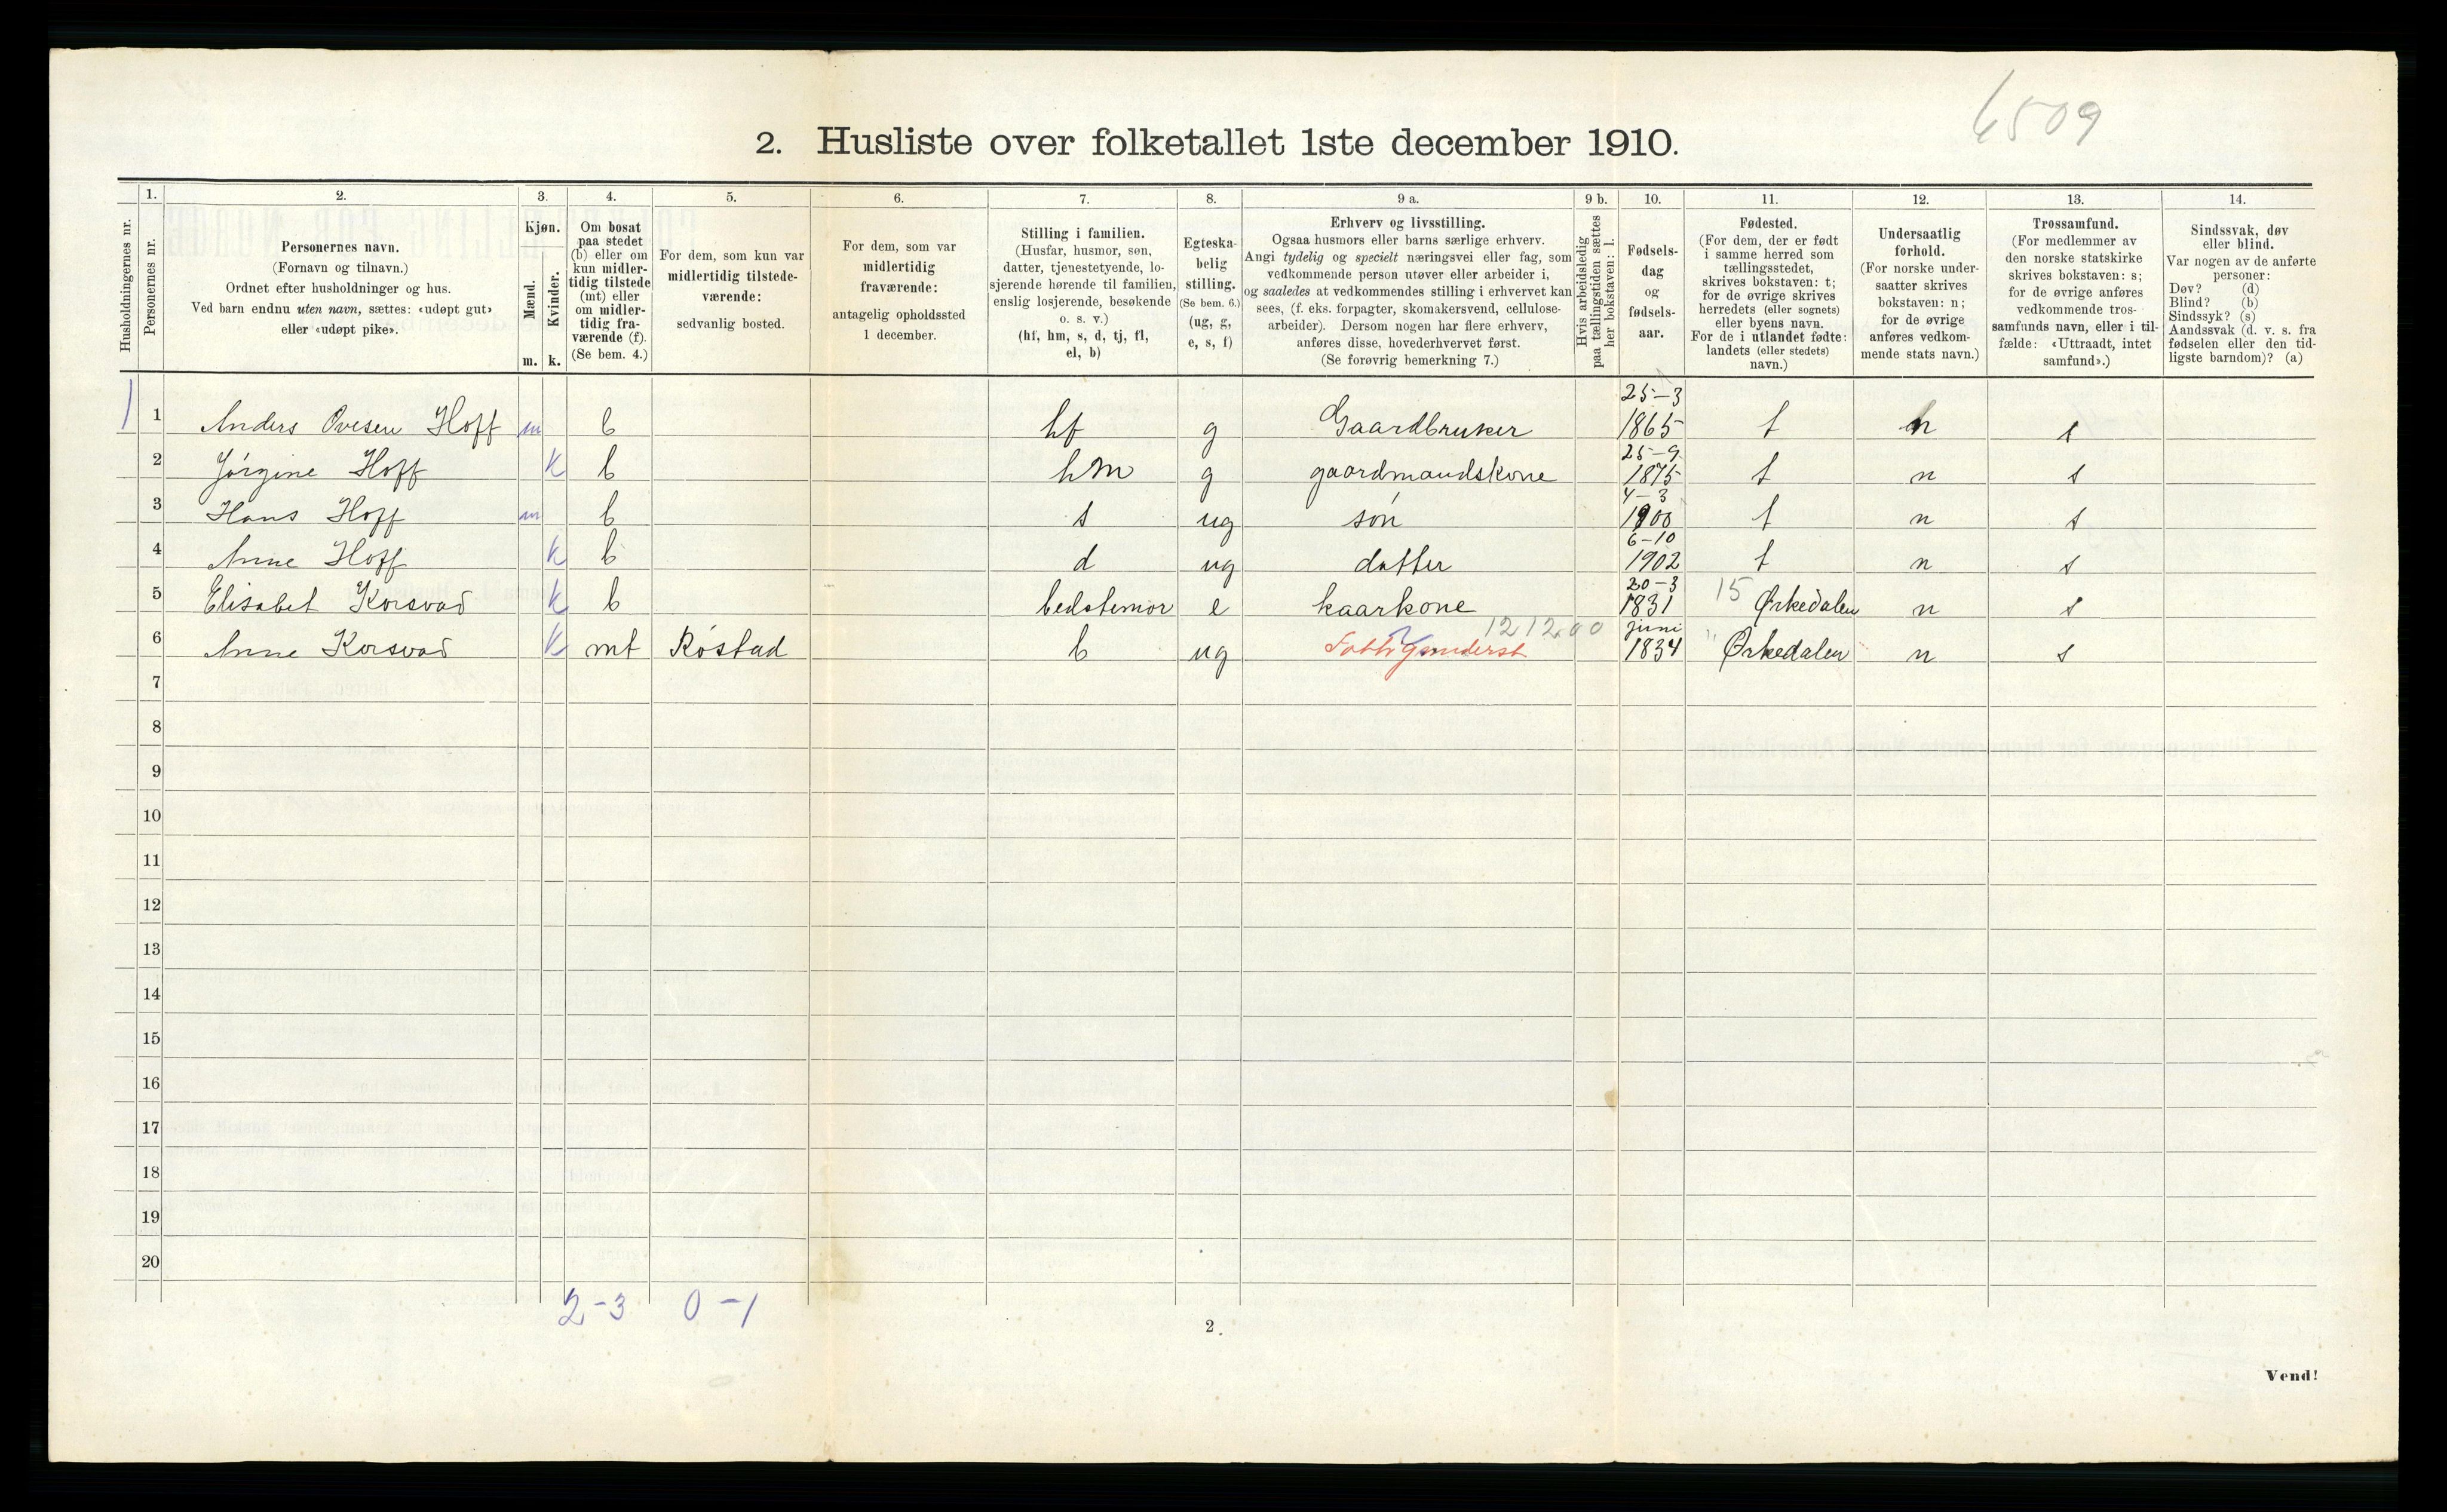 6509
2. Husliste over folketallet 1ste december 1910.
Husholdningernes nr.
1.
Personernes nr.
2.
Personernes navn.
(Fornavn og tilnavn.)
Ordnet efter husholdninger og hus.
Ved barn endnu uten navn, sættes: «udøpt gut»
eller «udøpt pike».
3.
Kjøn.
Mænd.
Kvinder.
m. k.
4.
Om bosat
paa stedet
(b) eller om
kun midler-
tidig tilstede
(mt) eller
om midler-
tidig fra-
værende (f).
(Se bem. 4.)
5.
For dem, som kun var
midlertidig tilstede-
værende:
sedvanlig bosted.
6.
For dem, som var
midlertidig
fraværende:
antagelig opholdssted
1 december.
7.
Stilling i familien.
(Husfar, husmor, søn,
datter, tjenestetyende, lo-
sjerende hørende til familien,
enslig losjerende, besøkende
o. s. v.)
(hf, hm, s, d, tj, fl,
el, b)
8.
Egteska-
belig
stilling.
(Se bem. 6.)
(ug, g,
e, s, f)
9 a.
Erhverv og livsstilling.
Ogsaa husmors eller barns særlige erhverv.
Angi tydelig og specielt næringsvei eller fag, som
vedkommende person utøver eller arbeider i,
og saaledes at vedkommendes stilling i erhvervet kan
sees, (f. eks. forpagter, skomakersvend, cellulose-
arbeider). Dersom nogen har flere erhverv,
anføres disse, hovederhvervet først.
(Se forøvrig bemerkning 7.)
9 b.
Hvis arbeidsledig
paa tællingstiden sættes
her bokstaven: l.
10.
Fødsels-
dag
og
fødsels-
aar.
11.
Fødested.
(For dem, der er født
i samme herred som
tællingsstedet,
skrives bokstaven: t;
for de øvrige skrives
herredets (eller sognets)
eller byens navn.
For de i utlandet fødte:
landets (eller stedets)
navn.)
12.
Undersaatlig
forhold.
(For norske under-
saatter skrives
bokstaven: n;
for de øvrige
anføres vedkom-
mende stats navn.)
13.
Trossamfund.
(For medlemmer av
den norske statskirke
skrives bokstaven: s;
for de øvrige anføres
vedkommende tros-
samfunds navn, eller i til-
fælde: «Uttraadt, intet
samfund».)
14.
Sindssvak, døv
eller blind.
Var nogen av de anførte
personer:
Døv? (d)
Blind? (b)
Sindssyk? (s)
Aandssvak (d. v. s. fra
fødselen eller den tid-
ligste barndom)? (a)
1 1 Anders Ovesen Hoff m b hf g Gaardbruker 25-3 1865 t n s
2 Jørgine Hoff k b hm g gaardmandskone 25-9 1875 t n s
3 Hans Hoff m b s ug søn 4-3 1900 t n s
4 Anne Hoff k b d ug datter 6-10 1902 t n s
5 Elisabet Korsvad k b bedstemor e kaarkone 20-3 1831 15 Ørkedalen n s
6 Anne Korsvad k mt Röstad b ug Fattigunderst 1212.00 juni 1834 " Ørkedalen n s
7
8
9
10
11
12
13
14
15
16
17
18
19
20
2-3 0-1
2
Vend!